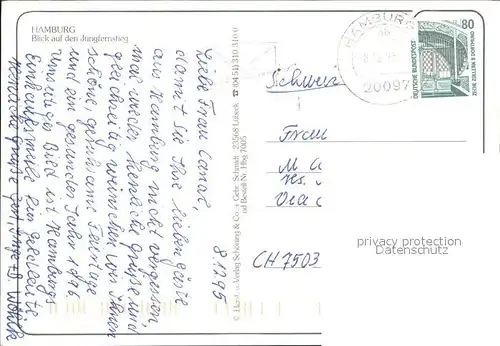 HAMBURG
Blick auf den Jungfernstieg
8.12.95
Liebe Frau Canal,
damit Sie Ihre lieben Gäste
aus Hamburg nicht vergessen
mal wieder herzliche Grüße und
gleichzeitig wünschen wir Ihnen
schöne, geruhsame Festtage
und ein gesundes Jahr 1996
Umseitiges Bild ist Hamburgs
Einkaufsmeile
Herzliche Grüße
© Horst u. Verlag Schöning & Co. + Gebr. Schmidt · 23568 Lübeck · ☎ (0451) 310 310
Bestell-Nr. Hbg 7005
HAMBURG
20097
80
DEUTSCHE BUNDESPOST
ZECHE ZOLLERN II DORTMUND
Schweiz
Frau
M
Via
CH 7503
privacy protection
Datenschutz